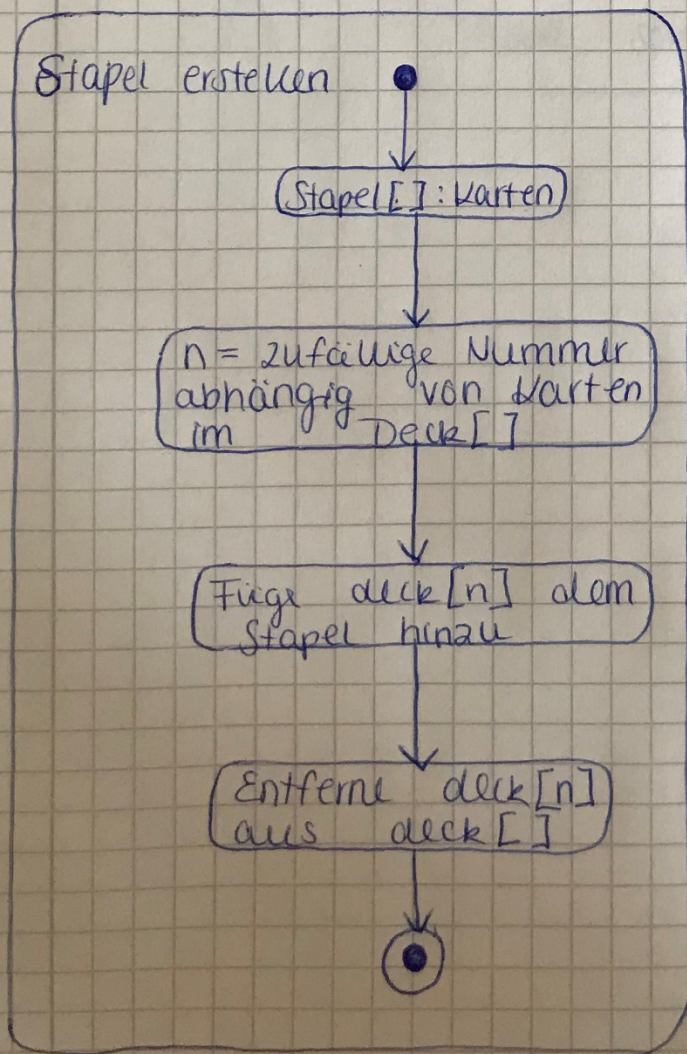 Stapel erstellen
Stapel[]: Karten
n = zufällige Nummer
abhängig von Karten
im Deck[]
Füge deck[n] dem
Stapel hinzu
Entferne deck[n]
aus deck[]